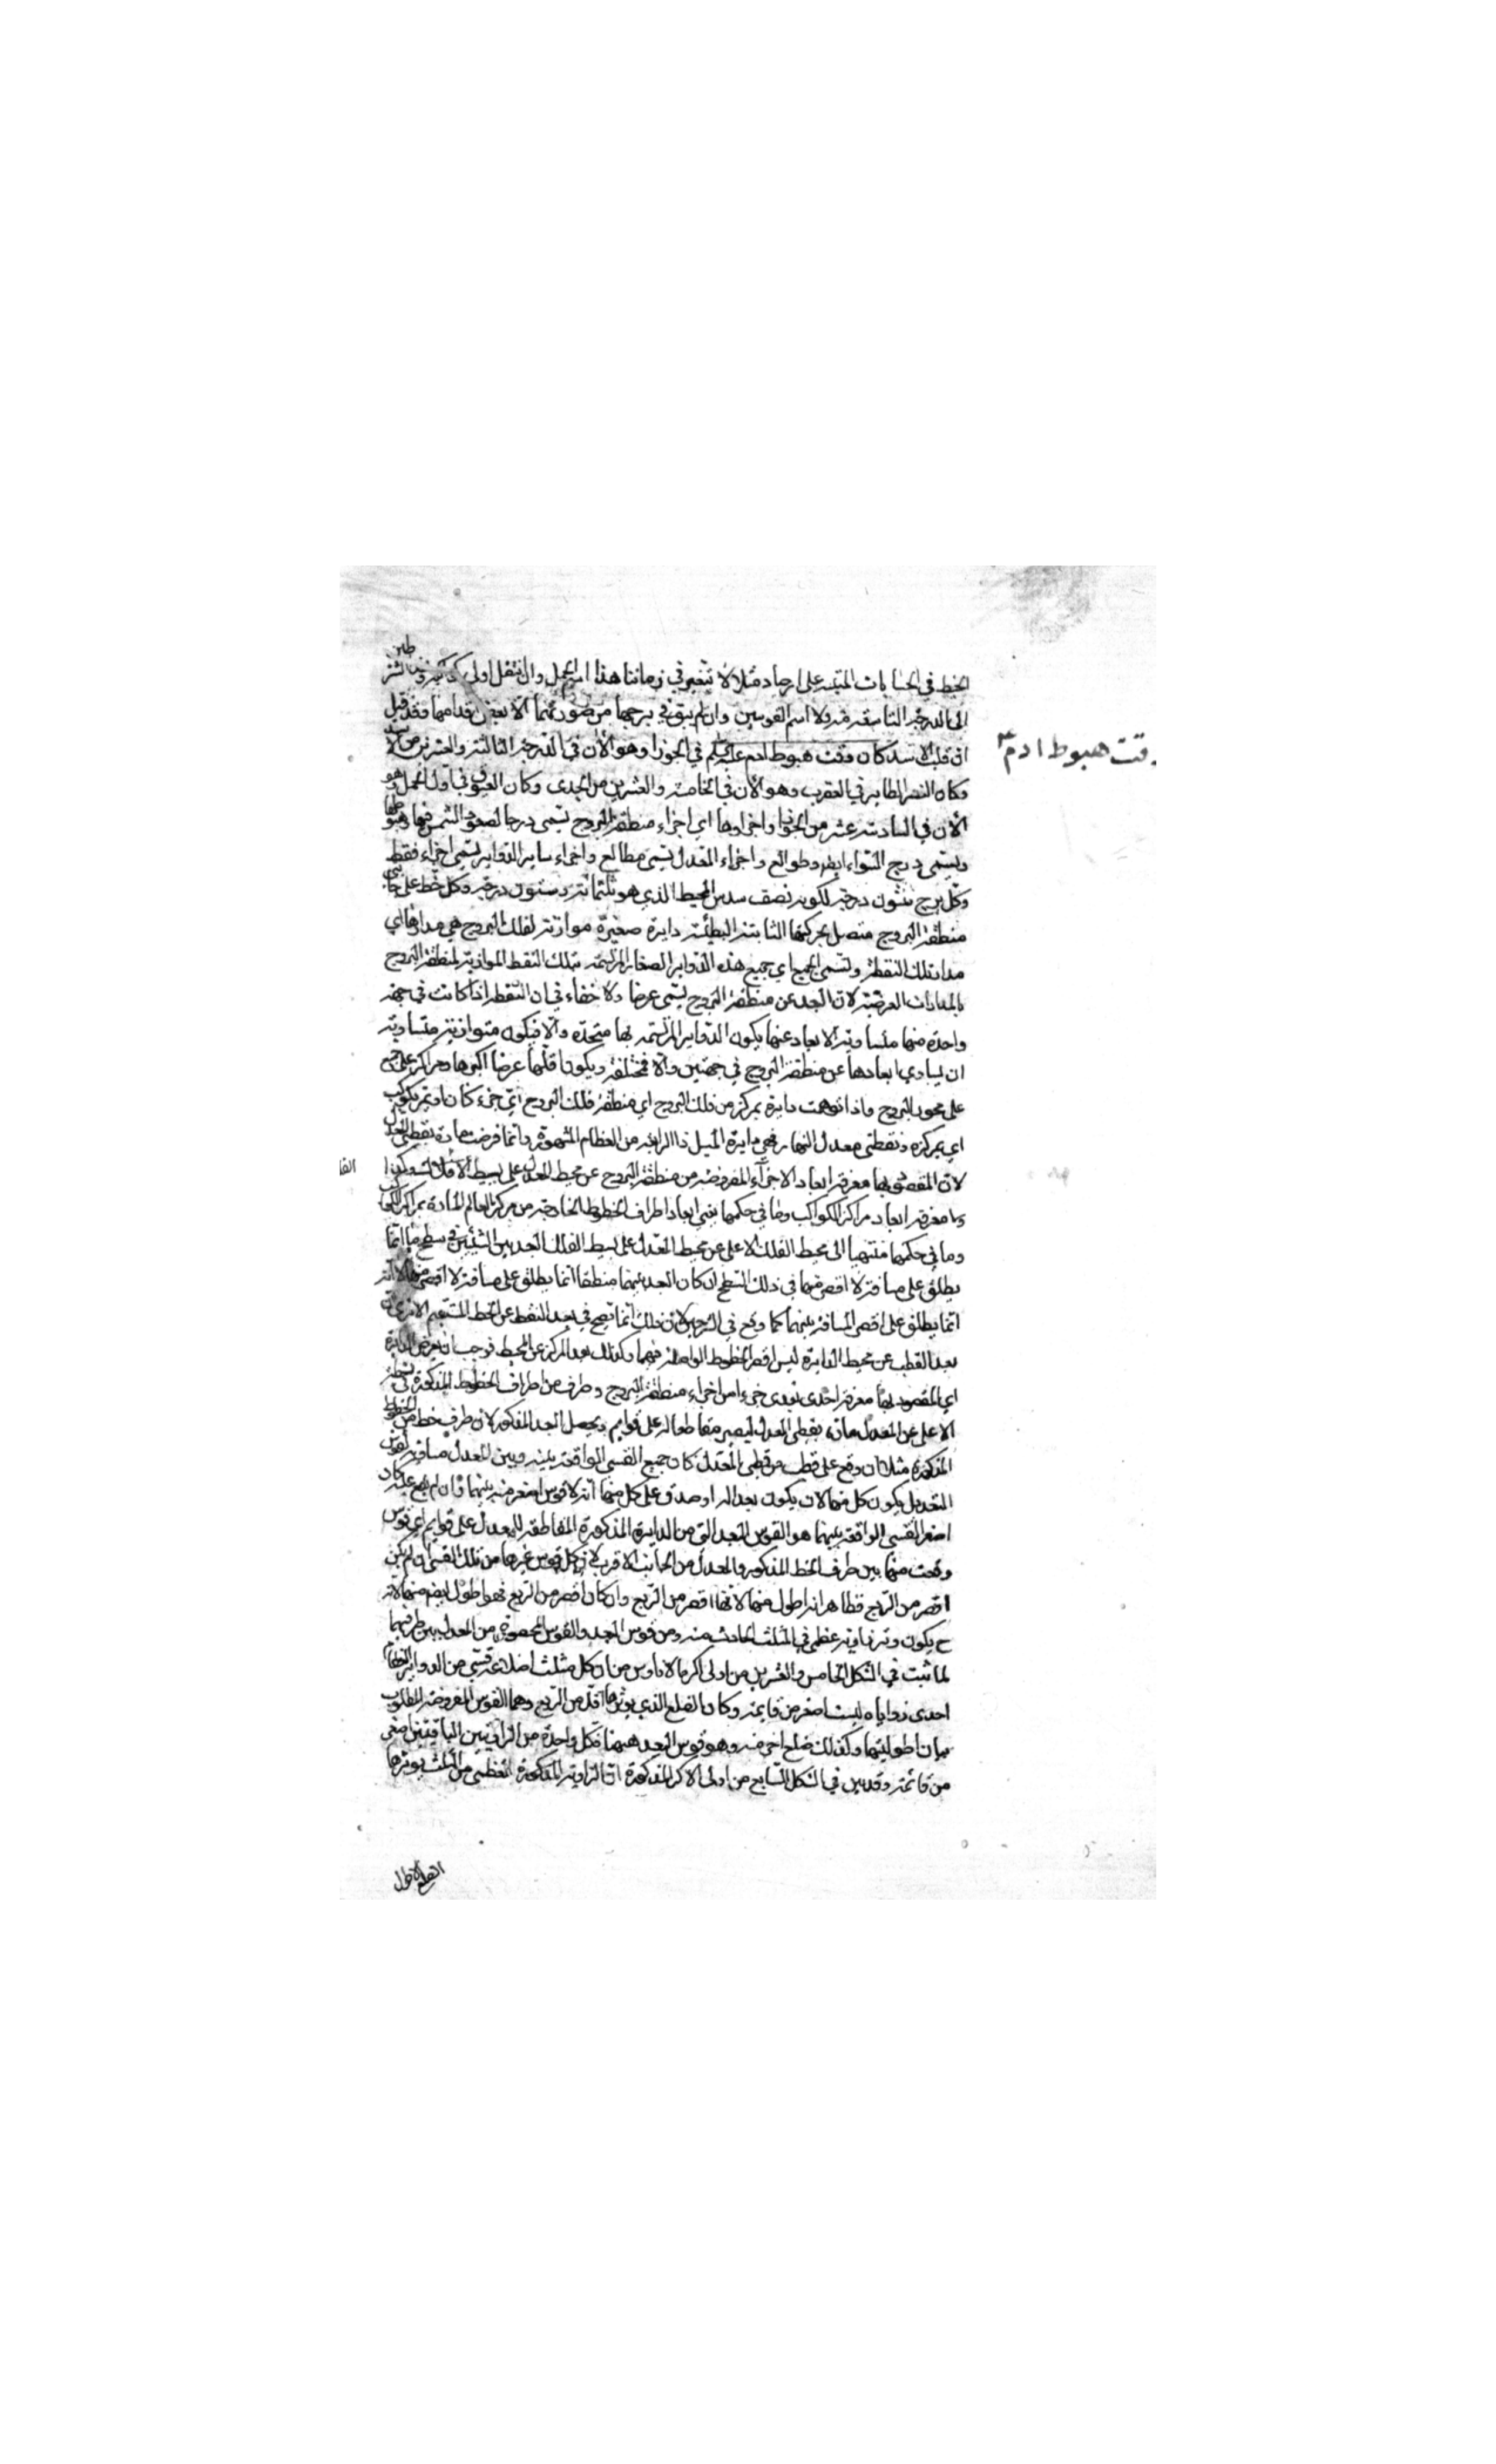 الخبط في الحسابات المبنية على ارصاد مثلا لا تتغير في زماننا هذا اسم الحمل وان انتقل اولى كواكبه
الى الدرجة التاسعة منه ولا اسم القوسين وان لم يبق في برجها من صورتهما الا بعض اقدامهما فقد قيل
ان قلب الاسد كان وقت هبوط ادم عليه السلم في الجوزا وهو الآن في الدرجة الثالثة والعشرين من
وكان النسر الطاير في العقرب وهو الآن في الخامسة والعشرين من الجدى وكان العيوق في اول الحمل وهو
الآن في السادسة عشر من الجوزا واجزاوها اي اجزاء منطقة البروج تسمى درجا لصعود الشمس فيها وهبوطها
ويسمى درج السواء ايضا وطوالع واجزاء المعدل تسمى مطالع واجزاء ساير الدواير تسمى اجزاء فقط
وكل برج ثلثون درجة لكونه نصف سدس المحيط الذي هو ثلثمائة وستون درجة وكل نقط على جانبي
منطقة البروج متصل بحركتها الثابتة البطيئة دايرة صغيرة موازية لفلك البروج هي مدارها اي
مدار تلك النقطة وتسمى الجميع اي جميع هذه الدواير الصغار المرتسمة بتلك النقط الموازية لمنطقة البروج
بالمدارات العرضية لان البعد عن منطقة البروج يسمى عرضا ولا خفاء في ان النقطة اذا كانت في جهة
واحدة منها متساوية الابعاد عنها يكون الدواير المرتسمة بها متحدة والا فيكون متوازية متساوية
ان تساوي ابعادها عن منطقة البروج في جهتين والا فمختلفة ويكون اقلها عرضا اكبرها ومراكز
على محور البروج واذا توهمت دايرة تمر بجزء من فلك البروج اي منطقة فلك البروج اي جزء كان او تمر بكوكب
اي بمركزه ونقطتى معدل النهار فهي دايرة الميل ذا الرابعة من العظام المشهورة وانما فرضت مارة بقطبى المعدل
لان المقصود بها معرفة ابعاد الاجزاء المفروضة من منطقة البروج عن محيط المعدل على بسيط الافلاك
وما معرفة ابعاد مراكز الكواكب وما في حكمها يعنى ابعاد اطراف الخطوط الخارجة من مركز العالم المارة بمراكز
وما في حكمها منتهيا الى محيط الفلك الاعلى عن محيط المعدل على بسيط الفلك البعد بين الشيئين في سطح ما انما
يطلق على مسافة لا اقصر منها في ذلك السطح ان كان البعد بينهما منطقا انما يطلق على مسافة لا اقصر منها لا انه
انما يطلق على اقصر المسافة بينهما كما وقع في الشرحين لان ذلك انما يصح في بعد النقط عن الخط المستقيم الا ترى ان
بعد القطب عن محيط الدايرة ليس اقصر الخطوط الواصلة فيهما وكذلك بعد المركز عن المحيط فوجب ان يعرض الدايرة
اي المقصود بها معرفة احدى بعدى جزء من اجزاء منطقة البروج وطرف من اطراف الخطوط المذكورة
الاعلى عن المعدل مارة بقطبى المعدل ليصير مقاطعا له على قوايم ويحصل البعد المذكور لان طرف خط من الخطوط
المذكورة مثلا ان وقع على قطب من قطبى المعدل كان جميع القسي الواقعة بينه وبين المعدل مساوية
المعدل يكون كل منها لان يكون بعدا له او صدق على كل منها انه لا قوس اصغر منه بينهما وان لم يقع عليه كان
اصغر القسى الواقعة بينهما هو القوس البعد التى من الدايرة المذكورة المقاطعة للمعدل على قوايم اي قوس
وقعت منها بين طرف الخط المذكور والمعدل من الجانب الاقرب لان كل قوس غيرها من تلك القسى ان لم يكن
اقصر من الربع فظاهر انه اطول منها لانها اقصر من الربع وان كان اقصر من الربع فهو اطول ايضا منها لانه
ح يكون وتر زاوية عظمى في المثلث الحادث منه ومن قوس البعد والقوس المحصورة من المعدل بين طرفيهما
لما ثبت في الشكل الخامس والعشرين من اولى اكر مالاناوس من ان كل مثلث اضلاعه قسى من الدواير العظام
احدى زواياه ليست اصغر من قايمة وكان الضلع الذي يوترها اقل من الربع وهما القوس المفروضة المطلوب
بيان اطوليتها وكذلك ضلع اخر منه وهو قوس البعد ههنا فكل واحدة من الزاويتين الباقيتين اصغر
من قائمة وقد بين في الشكل السابع من اولى الاكر المذكورة ان الزاوية المذكورة العظمى من المثلث يوترها
الضلع الاطول
وقت هبوط ادم